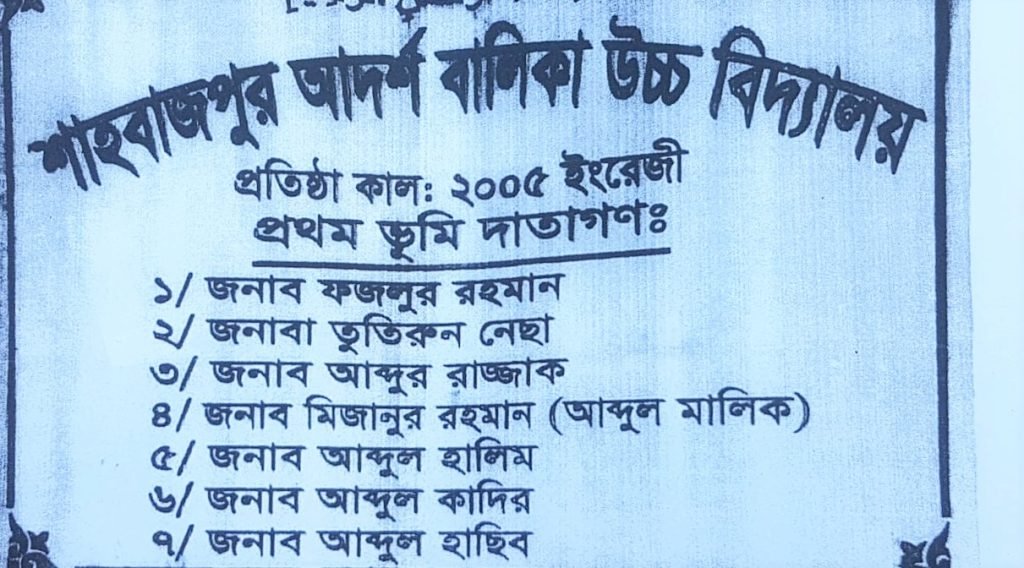 শাহবাজপুর আদর্শ বালিকা উচ্চ বিদ্যালয়
প্রতিষ্ঠা কাল: ২০০৫ ইংরেজী
প্রথম ভূমি দাতাগণঃ
১/ জনাব ফজলুর রহমান
২/ জনাবা তুতিরুন নেছা
৩/ জনাব আব্দুর রাজ্জাক
৪/ জনাব মিজানুর রহমান (আব্দুল মালিক)
৫/ জনাব আব্দুল হালিম
৬/ জনাব আব্দুল কাদির
৭/ জনাব আব্দুল হাছিব